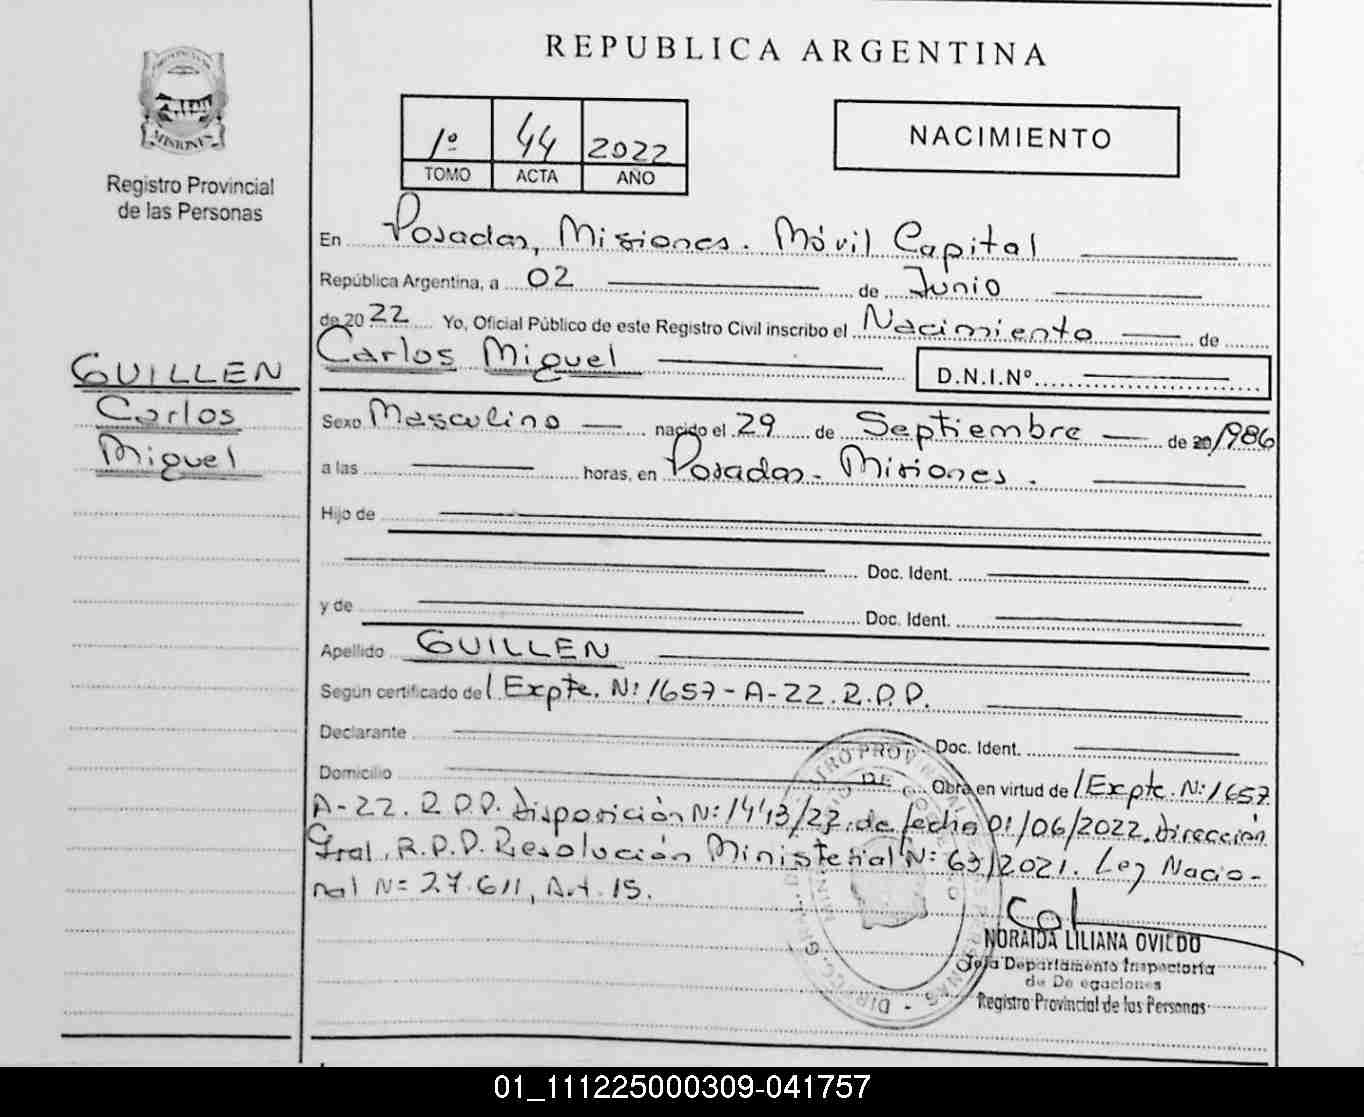 REPUBLICA ARGENTINA
MISIONES
Registro Provincial
de las Personas
1º 44 2022
TOMO ACTA AÑO
NACIMIENTO
En Posadas, Misiones. Móvil Capital
República Argentina, a 02 de Junio
de 2022 Yo, Oficial Público de este Registro Civil inscribo el Nacimiento de
Carlos Miguel D.N.I.Nº
GUILLEN
Carlos
Miguel
Sexo Masculino nacido el 29 de Septiembre de 20/986
a las horas, en Posadas - Misiones.
Hijo de
Doc. Ident.
y de Doc. Ident.
Apellido GUILLEN
Según certificado de Expte. Nº 1657-A-22.R.P.P.
Declarante Doc. Ident.
Domicilio Obra en virtud de Expte. Nº 1657
A-22. R.P.P. Disposición Nº 1443/22. de fecha 01/06/2022. Dirección
Gral. R.P.P. Resolución Ministerial Nº 63/2021. Ley Nacio-
nal Nº 27.611, Art. 15.
NORAIDA LILIANA OVIEDO
Jefa Departamento Inspectoría
de Delegaciones
Registro Provincial de las Personas
01_111225000309-041757